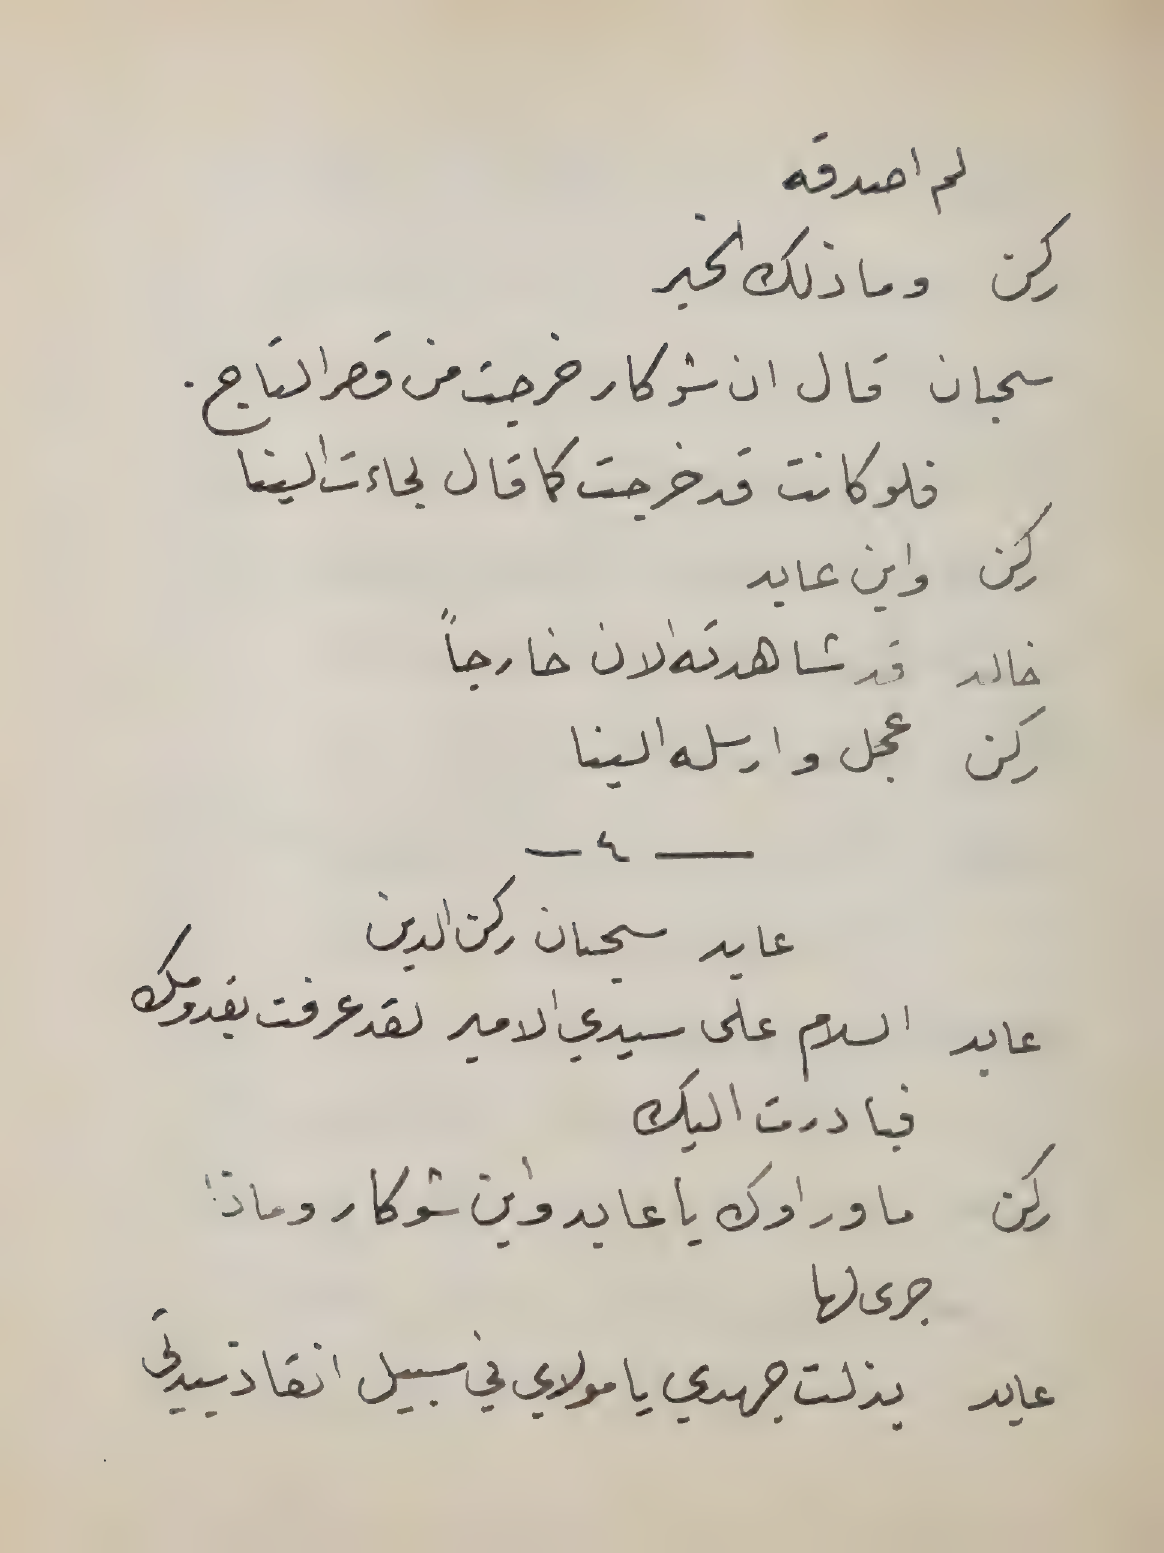 لم اصدقه
ركن وما ذلك الخبر
سحبان قال ان شوكار خرجت من قصر التاج .
فلو كانت قد خرجت كما قال لجاءت الينا
ركن واين عابد
خالد قد شاهدته الان خارجاً
ركن عجل وارسله الينا
— ٤ —
عابد سحبان ركن الدين
عابد السلام على سيدي الامير لقد عرفت بقدومك
فبادرت اليك
ركن ما وراوك يا عابد واين شوكار وماذا
جرى لها
عابد بذلت جهدي يا مولاي في سبيل انقاذ سيدتي